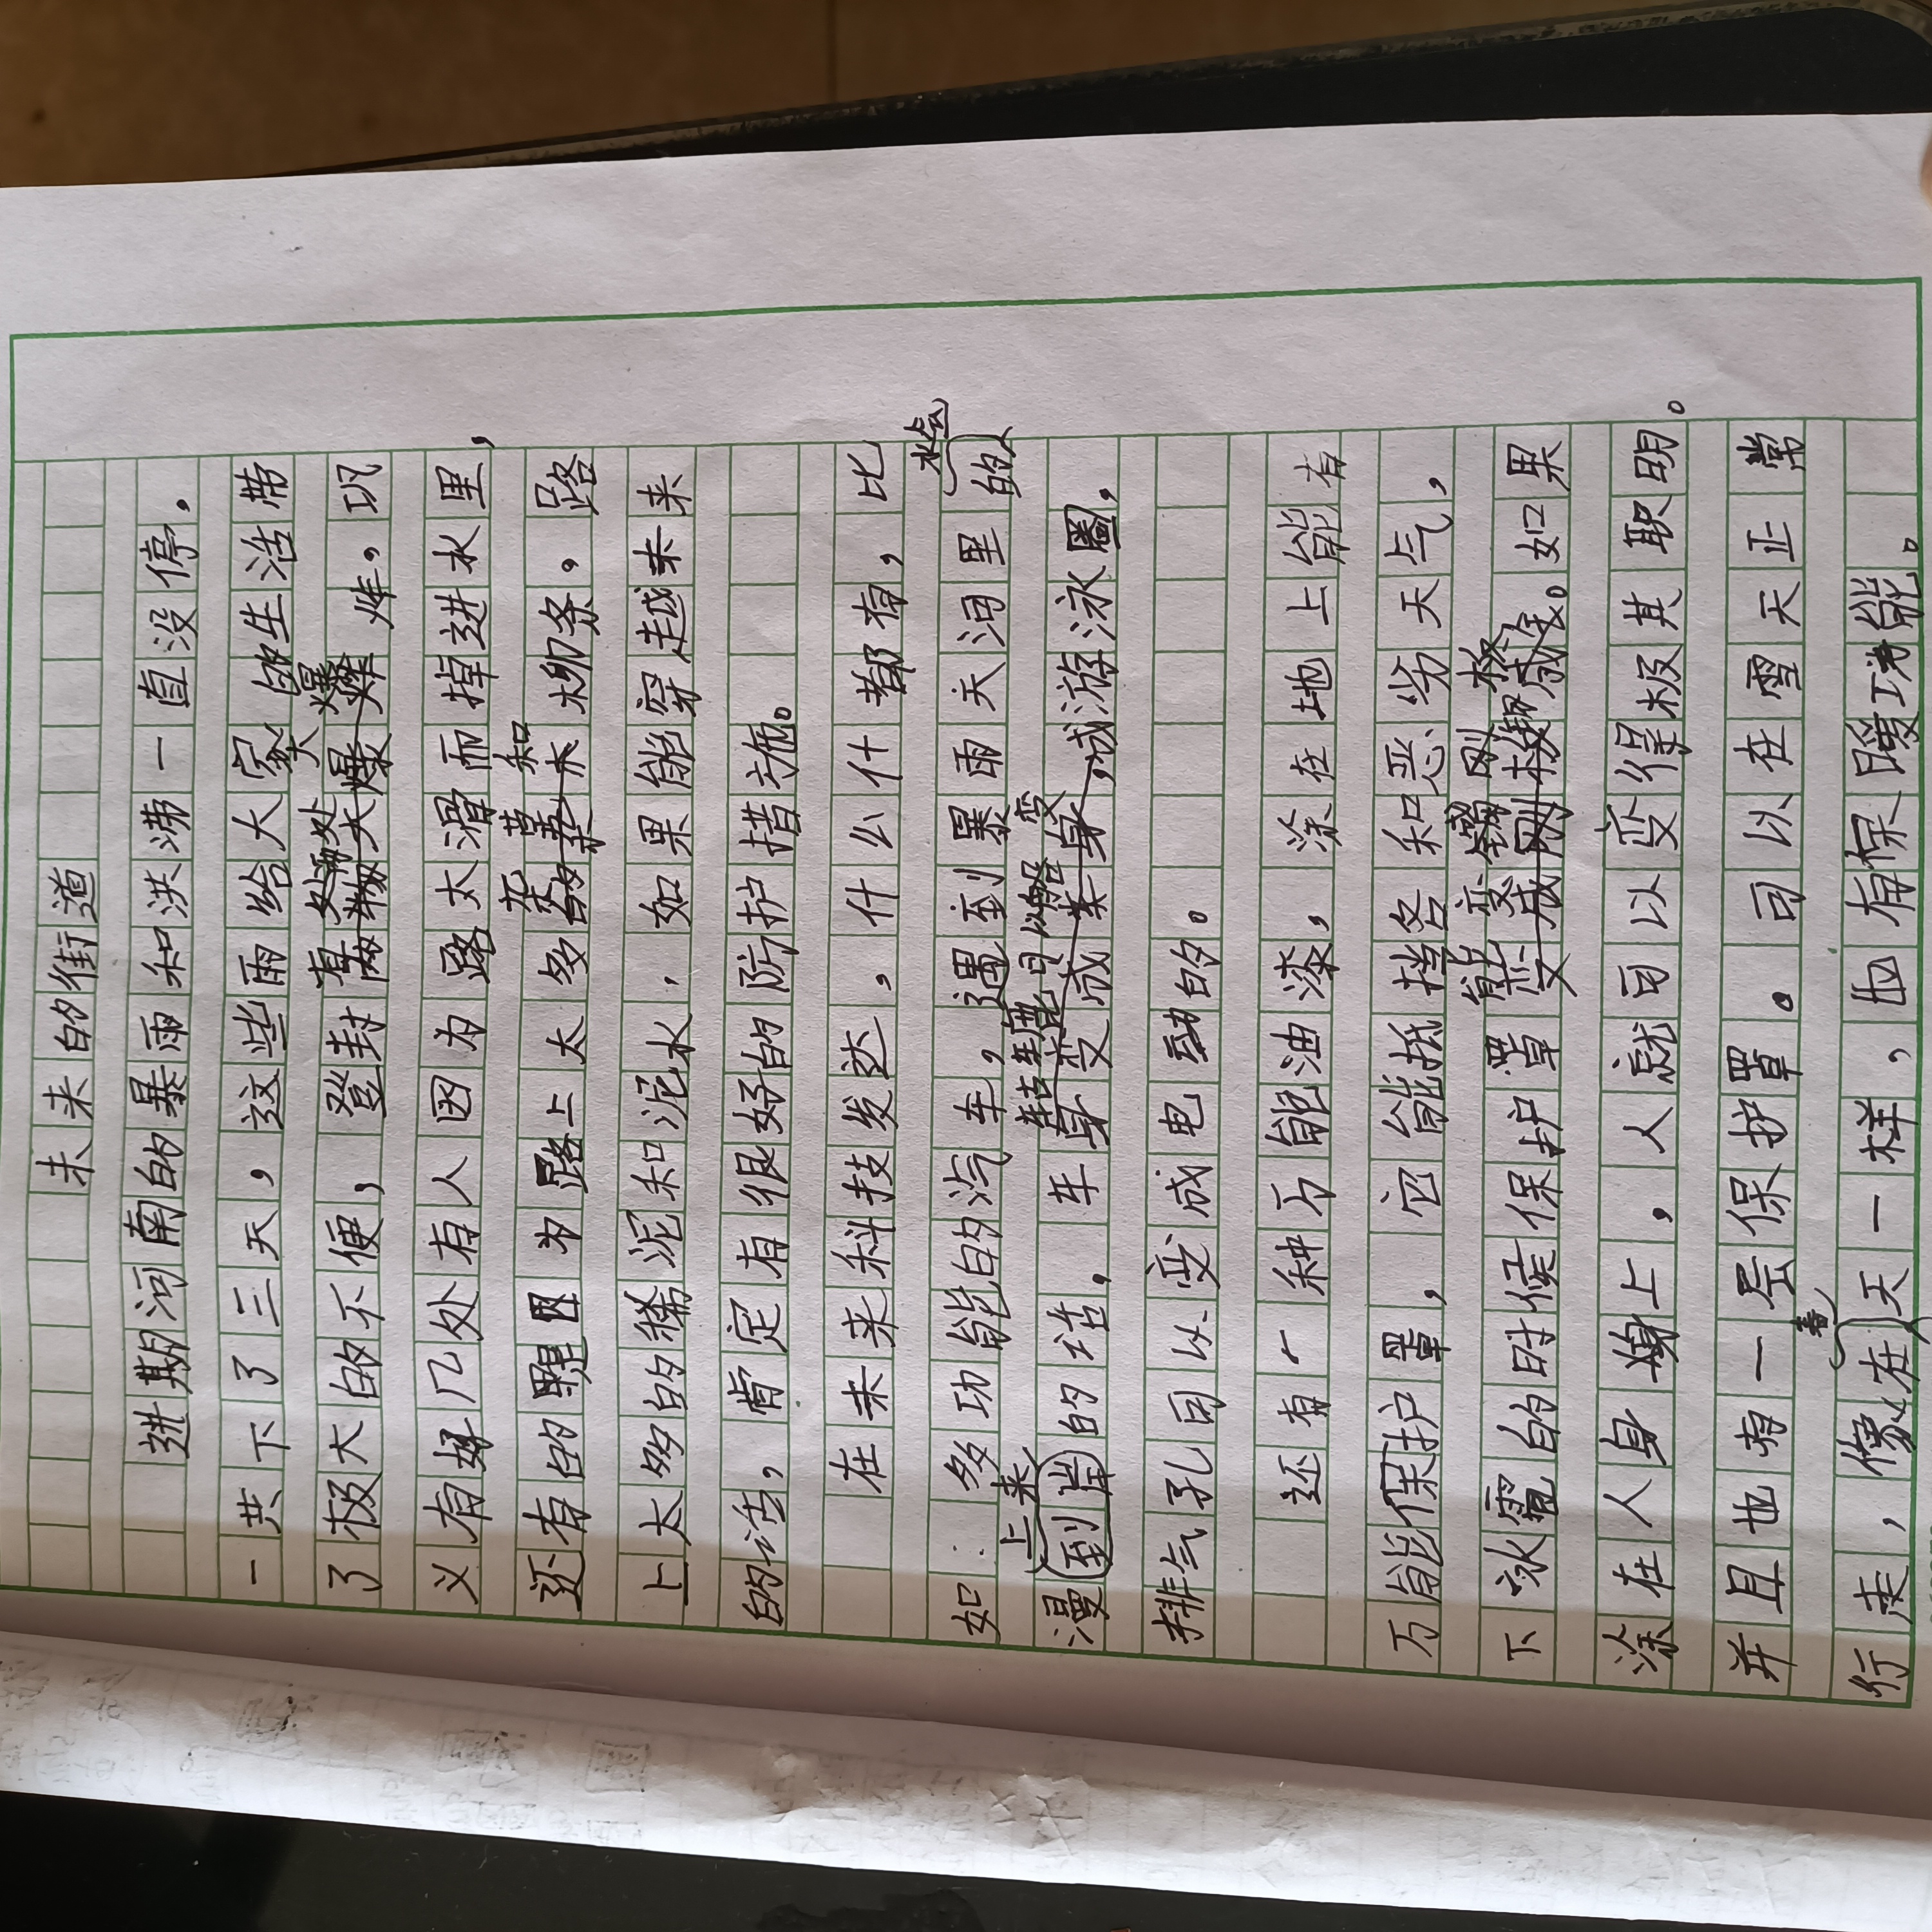 未来的街道
进期河南的暴雨和洪涝一直没停。
一共下了三天，这些雨给大家的生活带
了极大的不便，登封有两处大爆炸。巩
义有好几处有人因为路太滑而掉进水里，
还有的是因为路上太多花草和树条。路
上太多的稀泥和泥水，如果能穿越未来
的话，肯定有很好的防护措施。
在未来科技发达，什么什都有，比
如：多功能的汽车，遇到暴雨天河里的水会
漫上来的话，车轱辘可以变成游泳圈，
排气孔可以变成电动的。
还有一种万能油漆，涂在地上能有
万能保护罩，它能抵挡各和恶劣天气，
下冰雹的时候保护罩能变成。如果
涂在人身上，人就可以变得极其聪明。
并且也有一层保护罩。可以在雪天正常
行走，像在春天一样，也有保暖功能。